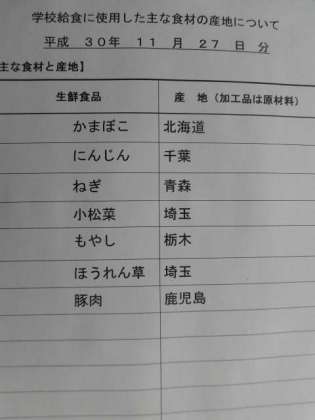 学校給食に使用した主な食材の産地について
平成 30年 11 月 27 日 分
主な食材と産地】
生鮮食品 産 地（加工品は原材料）
かまぼこ 北海道
にんじん 千葉
ねぎ 青森
小松菜 埼玉
もやし 栃木
ほうれん草 埼玉
豚肉 鹿児島